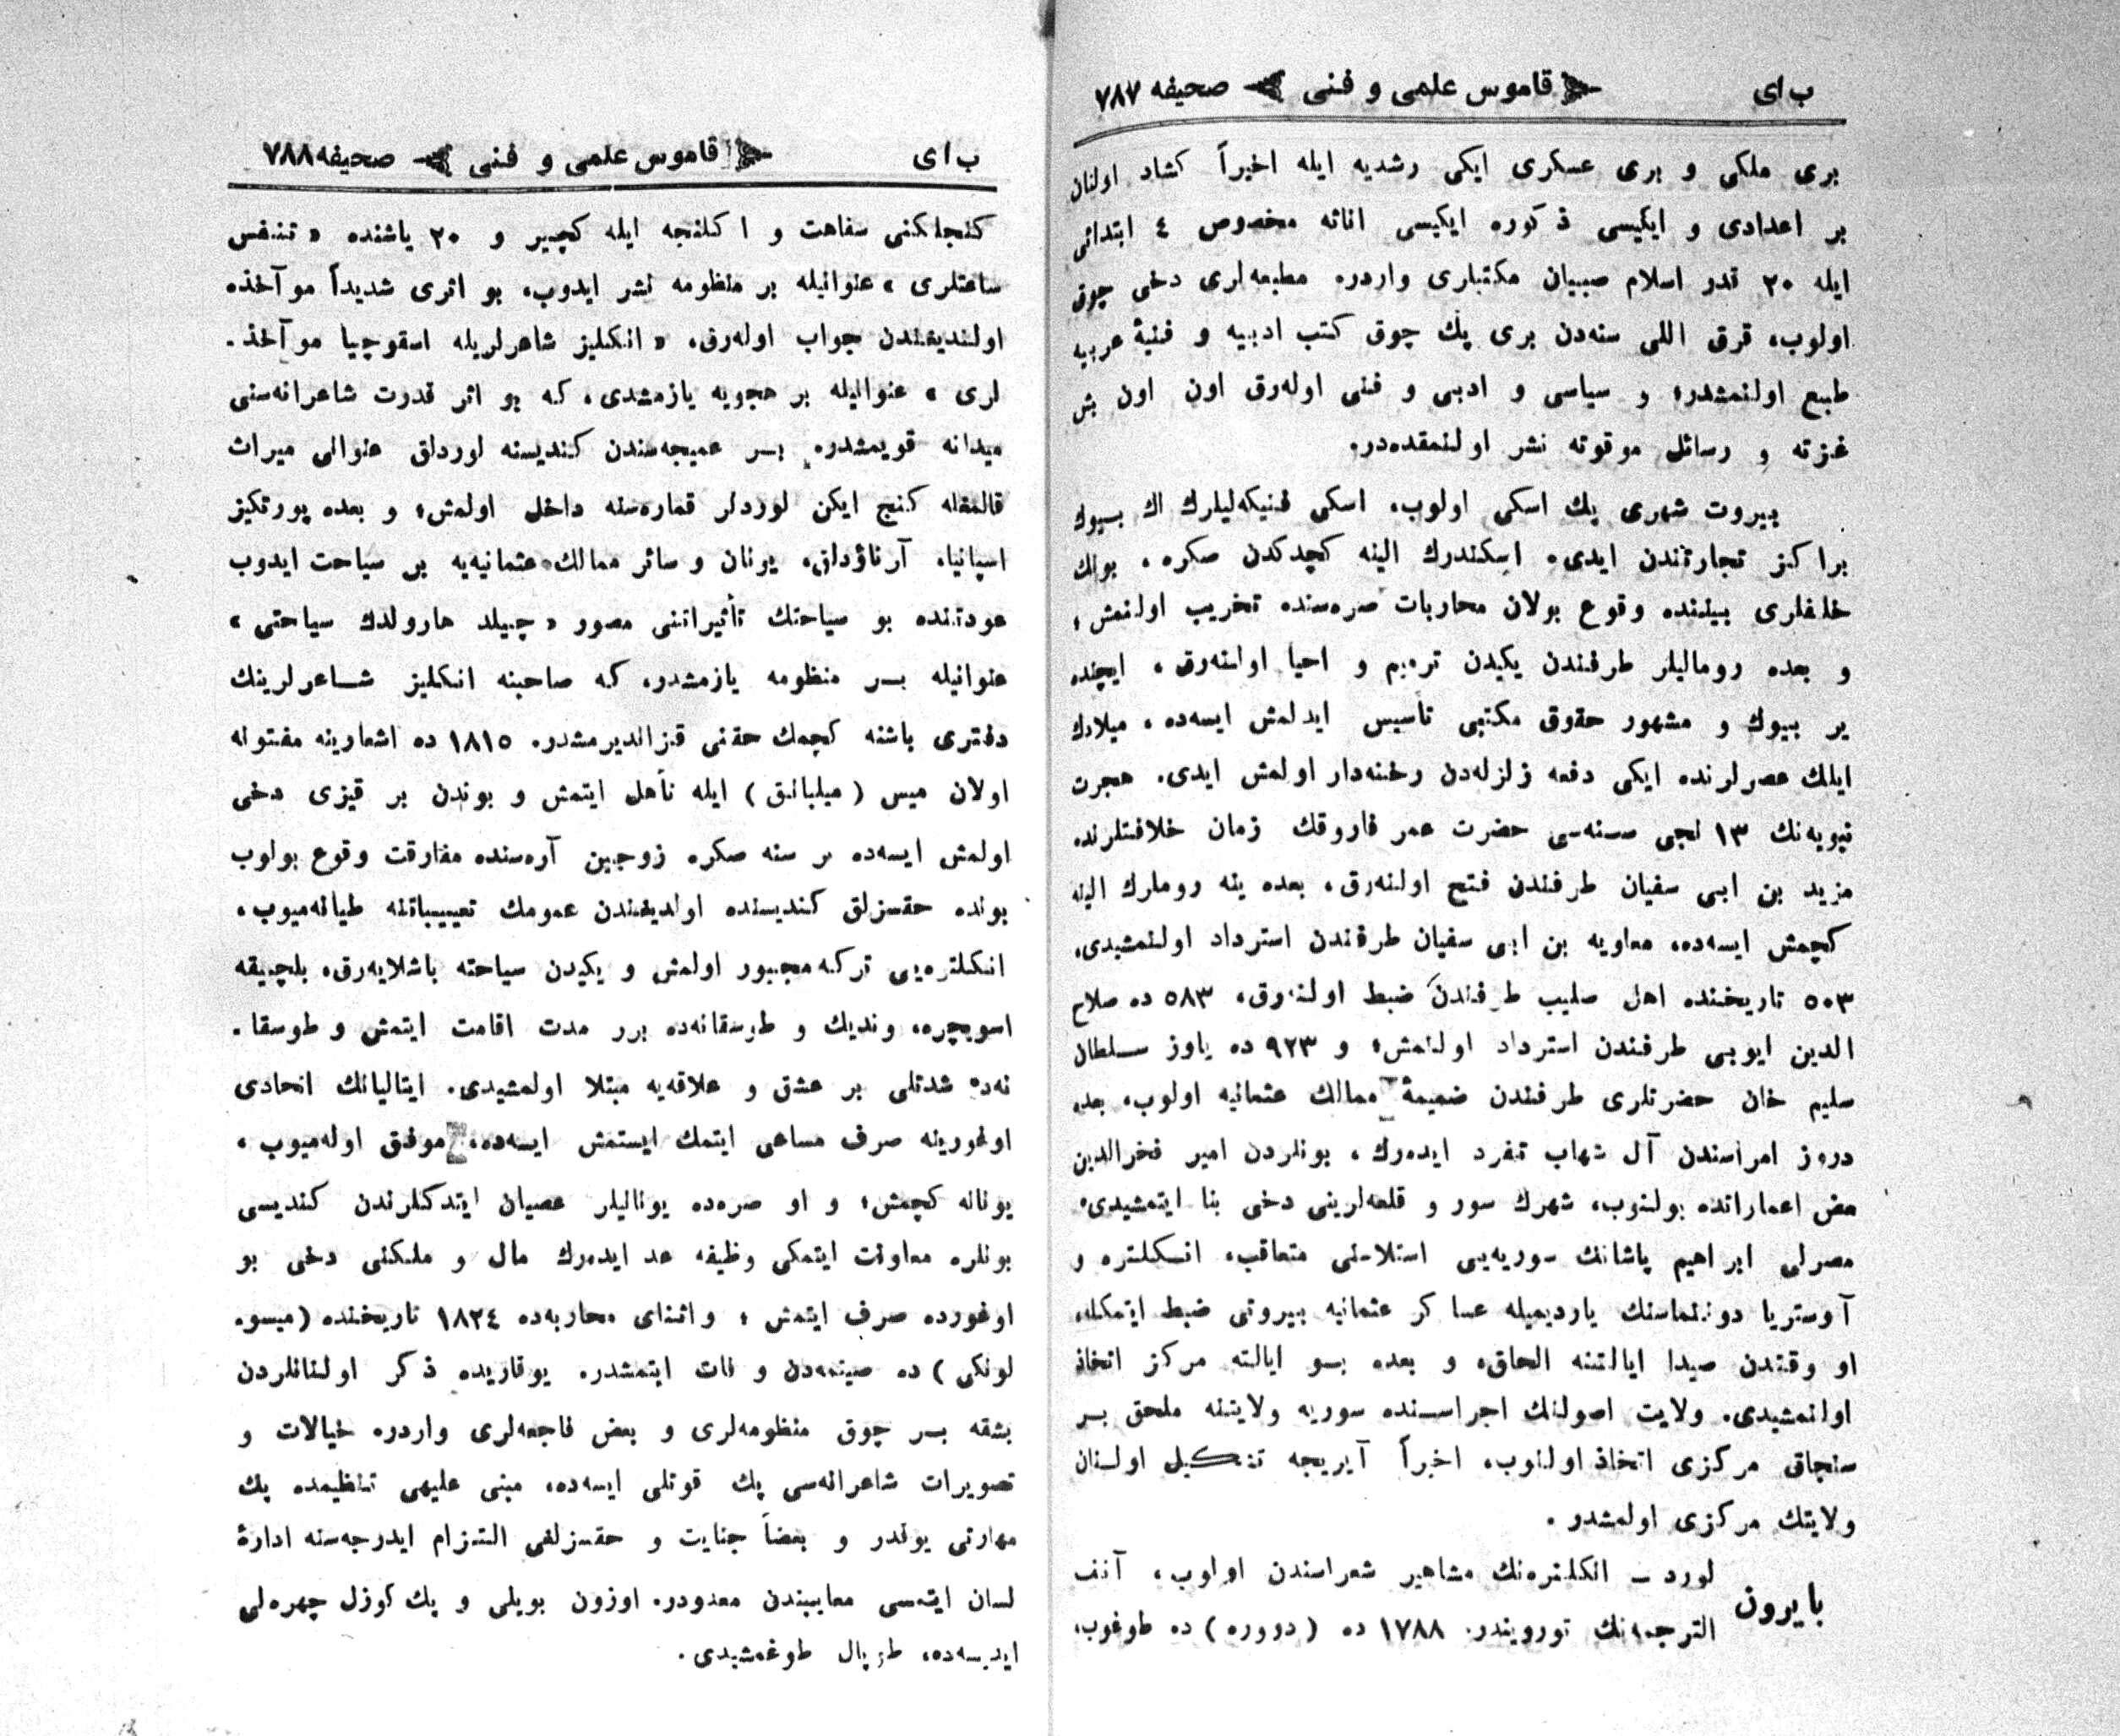 ب ای قاموس علمی و فنی صحیفه ٧٨٧
بری ملکی و بری عسکری ایکی رشدیه ایله اخیراً کشاد اولنان
بر اعدادی و ایکیسی ذکوره ایکیسی اناثه مخصوص ٤ ابتدائی
ایله ٢٠ قدر اسلام صبیان مکتبلری واردر. مطبعه‌لری دخی چوق
اولوب، قرق اللی سنه‌دن بری پك چوق کتب ادبیه و فنیهٔ عربیه
طبع اولنمشدر؛ و سیاسی و ادبی و فنی اوله‌رق اون اون بش
غزته و رسائل موقوته نشر اولنمقده‌در.
بیروت شهری پك اسکی اولوب، اسکی فنیکه‌لیلرك اك بیوك
مراکز تجارتندن ایدی. اسکندرك الینه کچدکدن صکره، بونك
خلفلری بیننده وقوع بولان محاربات صره‌سنده تخریب اولنمش؛
و بعده رومالیلر طرفندن یکیدن ترمیم و احیا اولنه‌رق، ایچنده
بر بیوك و مشهور حقوق مکتبی تأسیس ایدلمش ایسه‌ده، میلادك
ایلك عصرلرنده ایکی دفعه زلزله‌دن رخنه‌دار اولمش ایدی. هجرت
نبویه‌نك ١٣ نجی سنه‌سی حضرت عمر فاروقك زمان خلافتلرنده
مزید بن ابی سفیان طرفندن فتح اولنه‌رق، بعده ینه روملرك الینه
کچمش ایسه‌ده، معاویه بن ابی سفیان طرفندن استرداد اولنمشیدی.
٥٠٣ تاریخنده اهل صلیب طرفندن ضبط اولنه‌رق، ٥٨٣ ده صلاح
الدین ایوبی طرفندن استرداد اولنمش؛ و ٩٢٣ ده یاوز سلطان
سلیم خان حضرتلری طرفندن ضمیمهٔ ممالك عثمانیه اولوب، بعده
دروز امراسندن آل شهاب تفرد ایده‌رك، بونلردن امیر فخرالدین
بعض اعماراتده بولنوب، شهرك سور و قلعه‌لرینی دخی بنا ایتمشیدی.
مصرلی ابراهیم پاشانك سوریه‌یی استلاسنی متعاقب، انکلتره و
آوستریا دوننماسنك یاردیمیله عساکر عثمانیه بیروتی ضبط ایتمکله،
او وقتدن صیدا ایالتنه الحاق، و بعده بو ایالته مرکز اتخاذ
اولنمشیدی. ولایت اصولنك اجراسنده سوریه ولایتنه ملحق بر
سنجاق مرکزی اتخاذ اولنوب، اخیراً آیریجه تشکیل اولنان
ولایتك مرکزی اولمشدر.
بایرون لورد ــ انکلتره‌نك مشاهیر شعراسندن اولوب، آنف
الترجمه‌نك تورونیدر. ١٧٨٨ ده (دووره) ده طوغوب،
ب ای قاموس علمی و فنی صحیفه ٧٨٨
کنجلکنی سفاهت و اکلنجه ایله کچیر و ٢٠ یاشنده «تنفس
ساعتلری» عنوانیله بر منظومه نشر ایدوب، بو اثری شدیداً موآخذه
اولندیغندن جواب اوله‌رق، «انکلیز شاعرلریله اسقوچیا موآخذ.
لری» عنوانیله بر هجویه یازمشدی، که بو اثر قدرت شاعرانه‌سنی
میدانه قویمشدر. بر عمیجه‌سندن کندیسنه لوردلق عنوانی میراث
قالمغله کنج ایکن لوردلر قماره‌سنه داخل اولمش؛ و بعده پورتکیز
اسپانیا، آرناؤدلق، یونان و سائر ممالك عثمانیه‌یه بر سیاحت ایدوب
عودتنده بو سیاحتك تأثیراتنی مصور «چیلد هارولدك سیاحتی»
عنوانیله بر منظومه یازمشدر، که صاحبنه انکلیز شاعرلرینك
دفتری باشنه کچمك حقنی قزاندیرمشدر. ١٨١٥ ده اشعارینه مفتونه
اولان میس (میلبانق) ایله تأهل ایتمش و بوندن بر قیزی دخی
اولمش ایسه‌ده بر سنه صکره زوجین آره‌سنده مفارقت وقوع بولوب
بونده حقسزلق کندیسنده اولدیغندن عمومك تعییباتنه طیانه‌میوب،
انکلتره‌یی ترکه مجبور اولمش و یکیدن سیاحته باشلایه‌رق، بلچیقه
اسویچره، وندیك و طوسقانه‌ده برر مدت اقامت ایتمش و طوسقا.
نه‌ده شدتلی بر عشق و علاقه‌یه مبتلا اولمشیدی. ایتالیانك اتحادی
اوغورینه صرف مساعی ایتمك ایستمش ایسه‌ده، موفق اوله‌میوب،
یونانه کچمش؛ و او صره‌ده یونانیلر عصیان ایتدکلرندن کندیسی
بونلره معاونت ایتمکی وظیفه عد ایده‌رك مال و ملکنی دخی بو
اوغورده صرف ایتمش؛ و اثنای محاربه‌ده ١٨٢٤ تاریخنده (میسو.
لونکی) ده صیتمه‌دن وفات ایتمشدر. یوقاریده ذکر اولنانلردن
بشقه بر چوق منظومه‌لری و بعض فاجعه‌لری واردر. خیالات و
تصویرات شاعرانه‌سی پك قوتلی ایسه‌ده، مبنی علیهی تنظیمده پك
مهارتی یوقدر و بعضاً جنایت و حقسزلغی التزام ایدرجه‌سنه ادارهٔ
لسان ایتمسی معایبندن معدودر. اوزون بویلی و پك کوزل چهره‌لی
ایدیسه‌ده، طوپال طوغمشیدی.